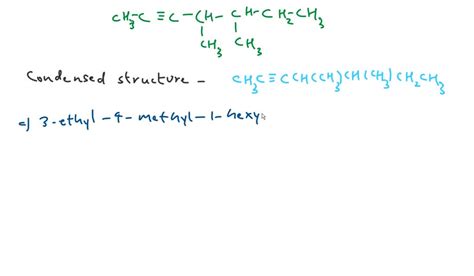 CH₃C ≡ C – CH – CH – CH₂ – CH₃
CH₃ CH₃
Condensed structure – CH₃C≡CCH(CH₃)CH(CH₃)CH₂CH₃
c) 3-ethyl-4-methyl-1-hexy